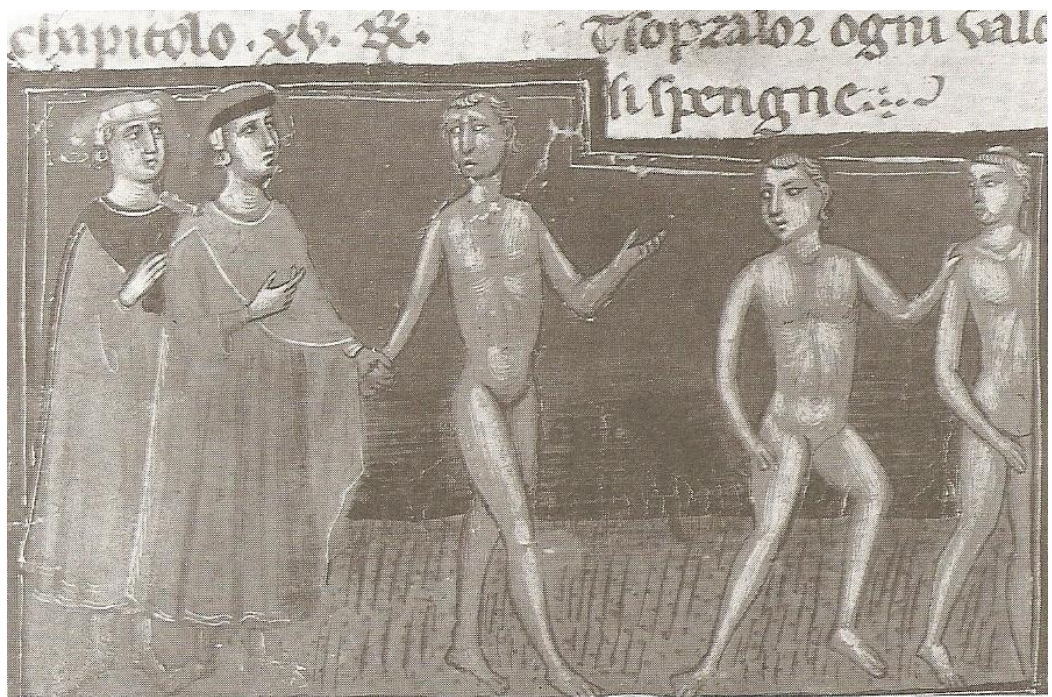 chapitolo · xv ·
Esopralor ogni valo
si spengne